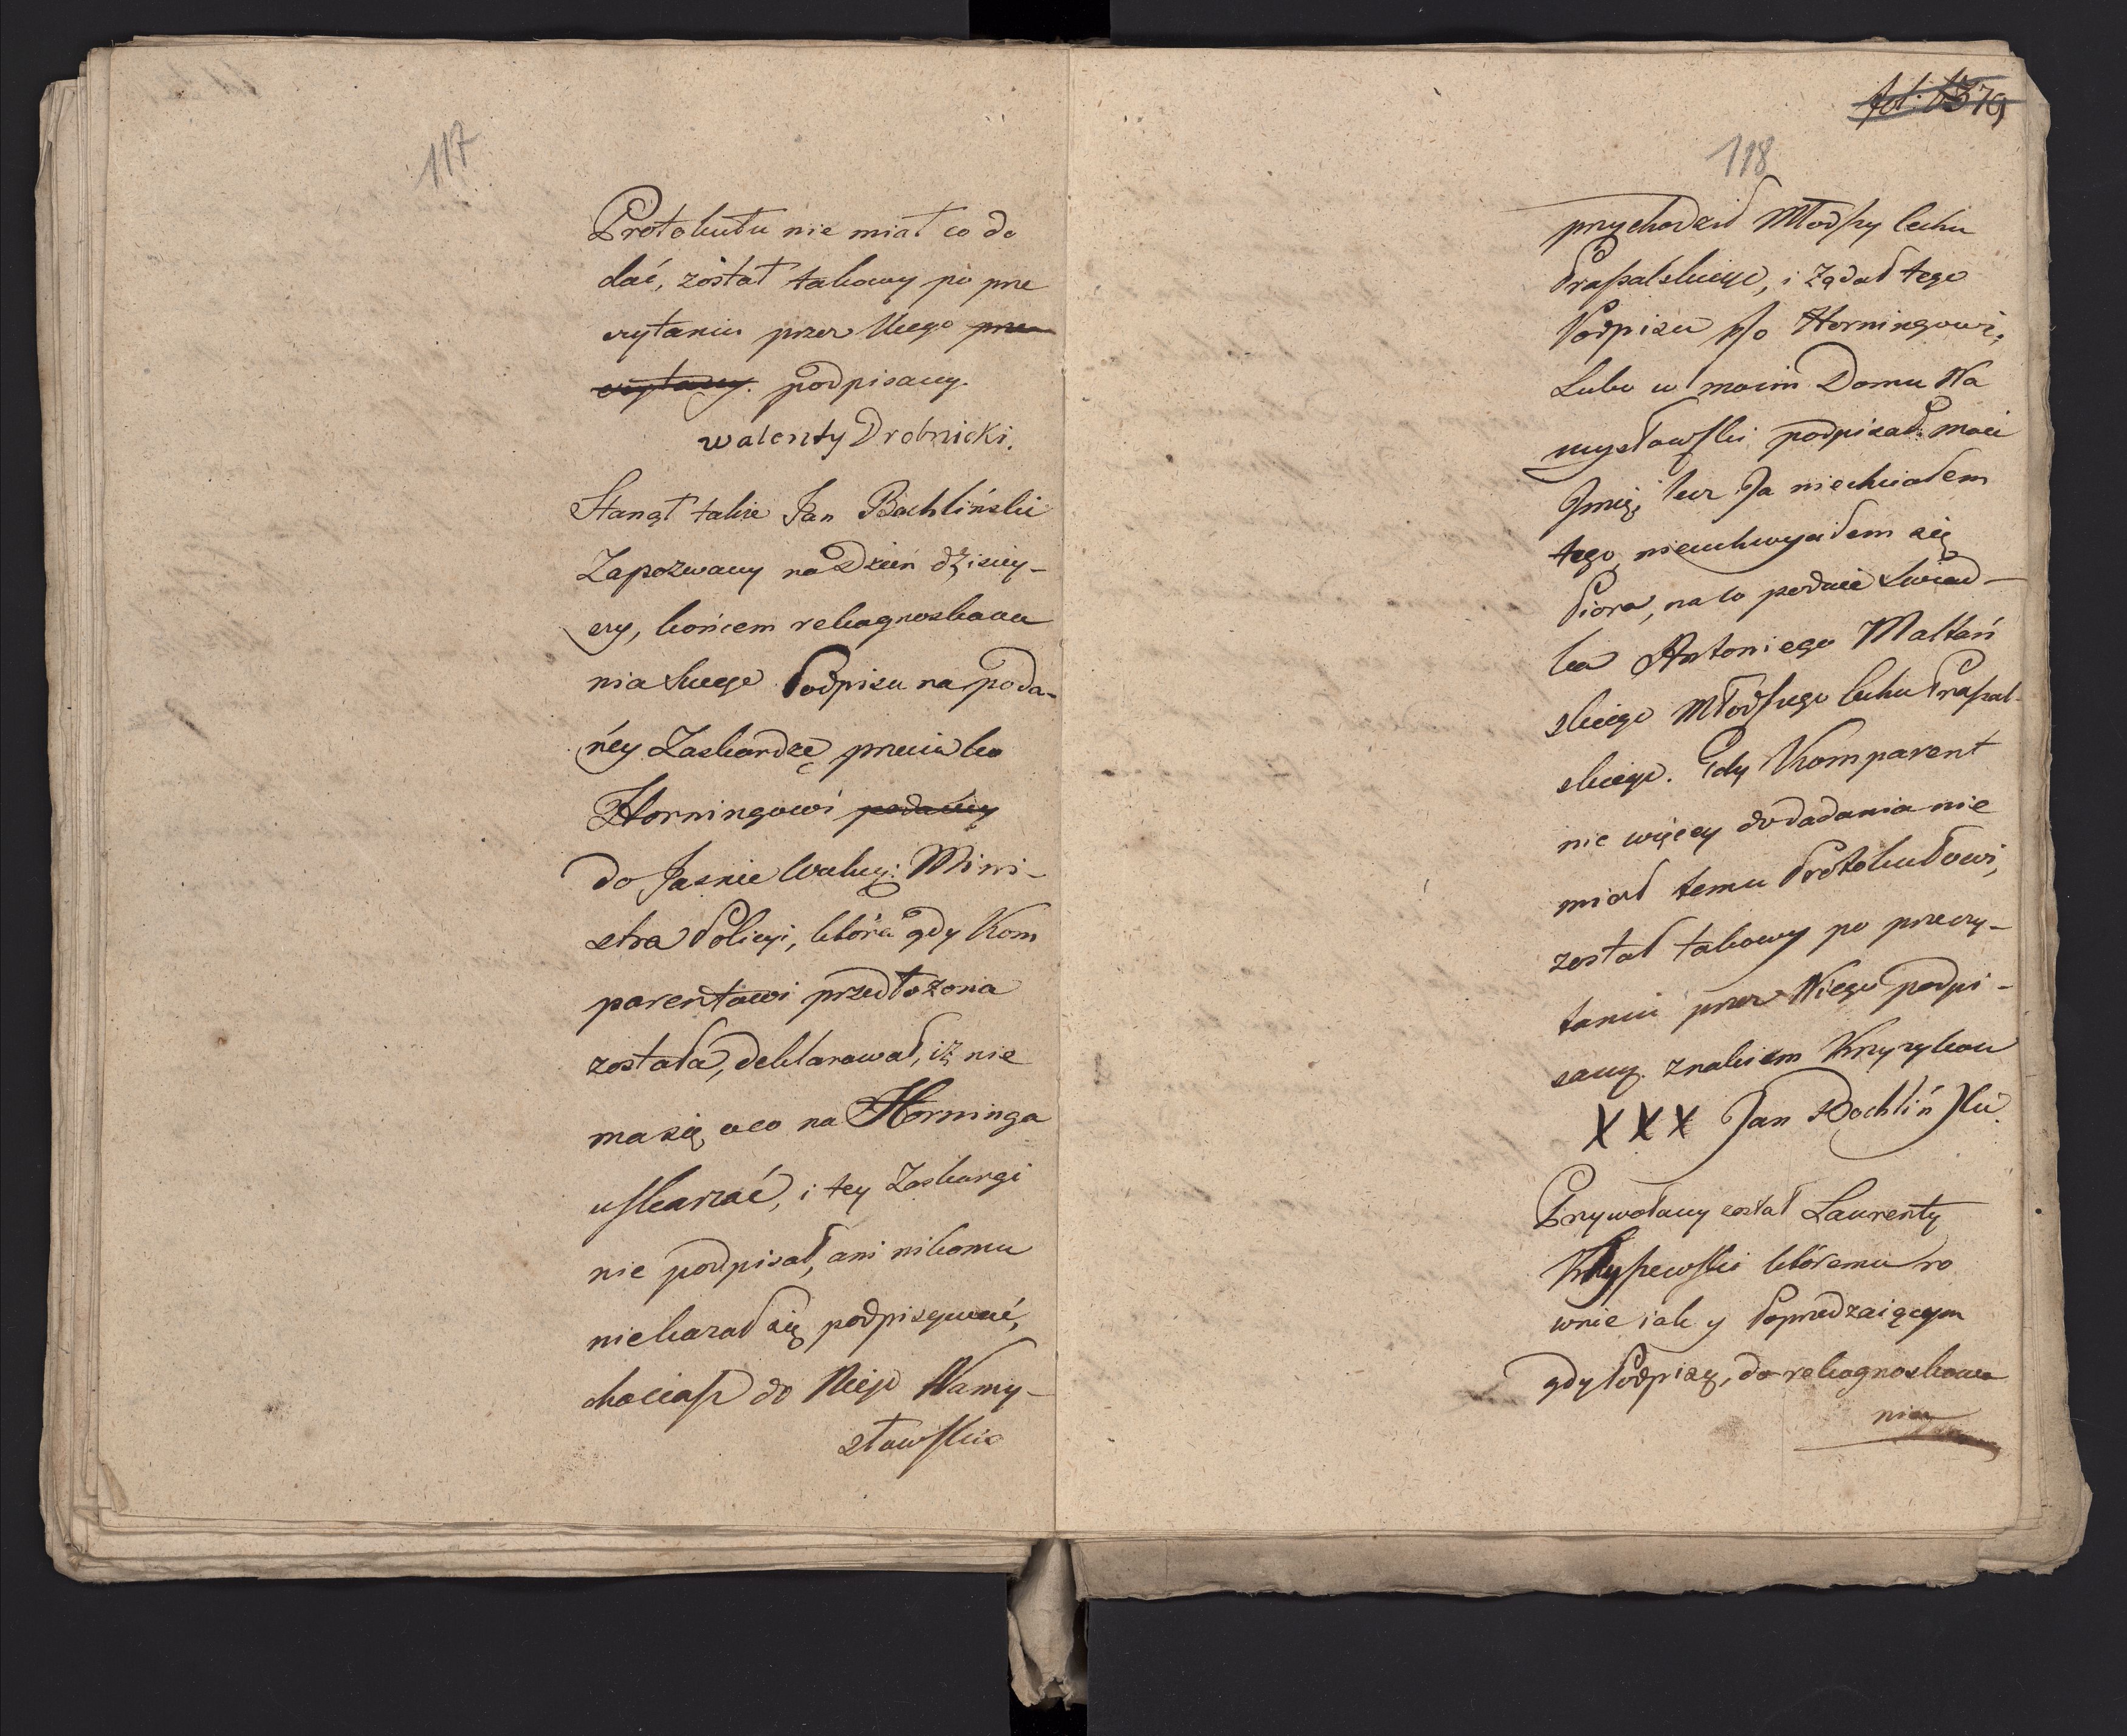 117
Protokułu nie miał co do
dać, został takowy po prze
czytaniu przez Niego prze
czytany. podpisany.
walenty Drobnicki.
Stanął także Jan Bochliński
Zapozwany na Dzień dzisiey-
szy, końcem rekognoskowa
nia swego Podpisu na poda-
ńey Zaskardze przeciwko
Horningowi podaney
do Jasnie Wielm: Mini-
stra Policyi, która gdy Kom
parentowi przedłożona
została, deklarował, iż nie
ma się oco na Horninga
uskarzać, i tey Zaskargi
nie podpisał, ani nikomu
niekazał się podpisywać,
chociasz do Niego Namy-
sławskie
fol: 79
118
przychodził Młodszy Cechu
Prasalskiego, i żądał tego
Podpisu p/o Horningowi,
Lubo w moim Domu Na
mysławski podpisał moie
Jmię, lecz Ja niechciałem
tego, nieuchwyciłem się
Piora, na to podaie Swiad-
ka Antoniego Maltań
skiego Młodszego Cechu Prasal-
skiego. Gdy Komparent
nic więcey do dadania nie
miał temu Protokułowi,
został takowy po przeczy-
taniu przez Niego podpi-
sany znakiem Krzyzykow
X X X Jan Bochliński.
Przywołany został Laurenty
Krzyszewski któremu ro
wnie iak y Poprzedzaiącym
gdy Podpisy, do rekognoskowa
nia